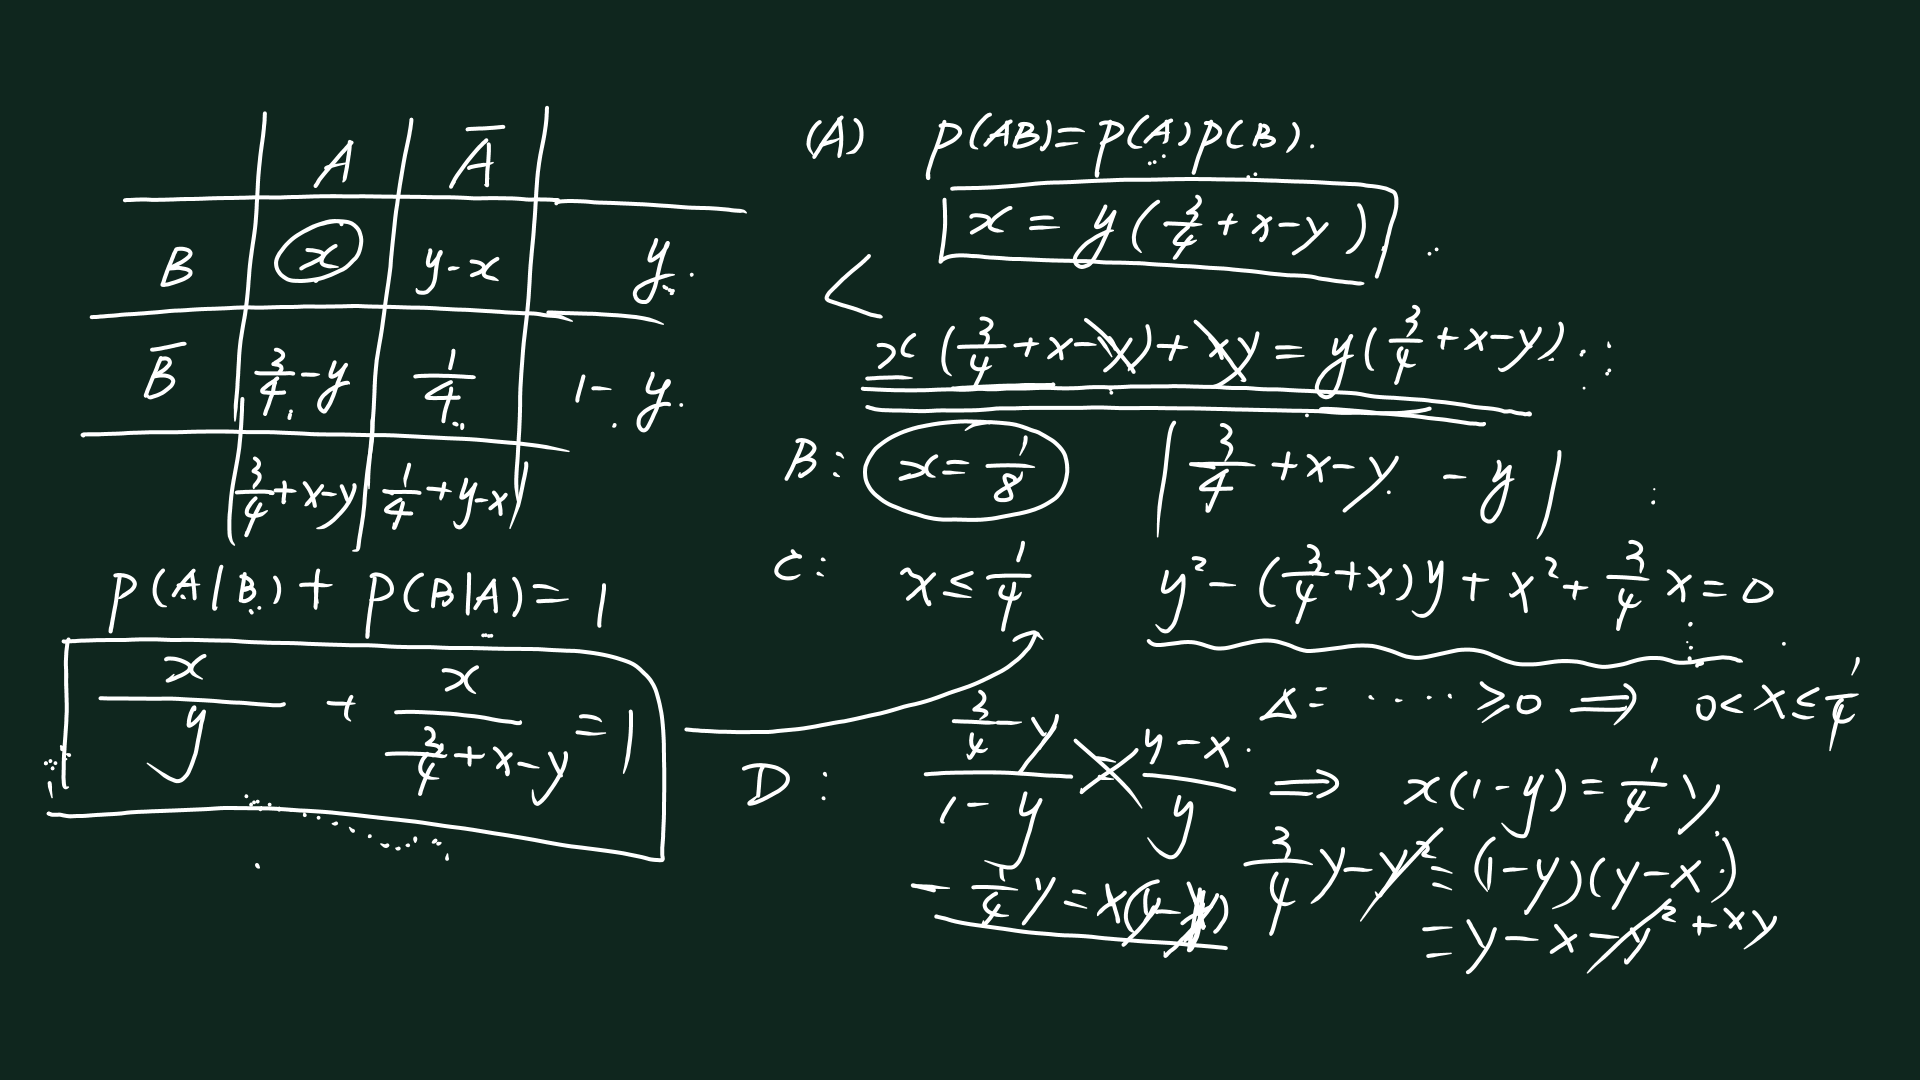 A Ā
B x y-x y.
B̄ 3/4-y 1/4 1-y.
3/4+x-y 1/4+y-x
P(A|B)+P(B|A)=1
x/y + x/(3/4+x-y) =1
(A) P(AB)=P(A)P(B).
x = y(3/4+x-y)
< x(3/4+x-y)+xy = y(3/4+x-y)
B: x=1/8 |3/4+x-y-y|
C: x≤1/4 y²-(3/4+x)y+x²+3/4x=0
Δ= ····· ≥0 ⟹ 0<x≤1/4
D: (3/4-y)/(1-y) = (y-x)/y ⟹ x(1-y)=1/4y
3/4y-y²=(1-y)(y-x)
-1/4y=x(y-1) =y-x-y²+xy